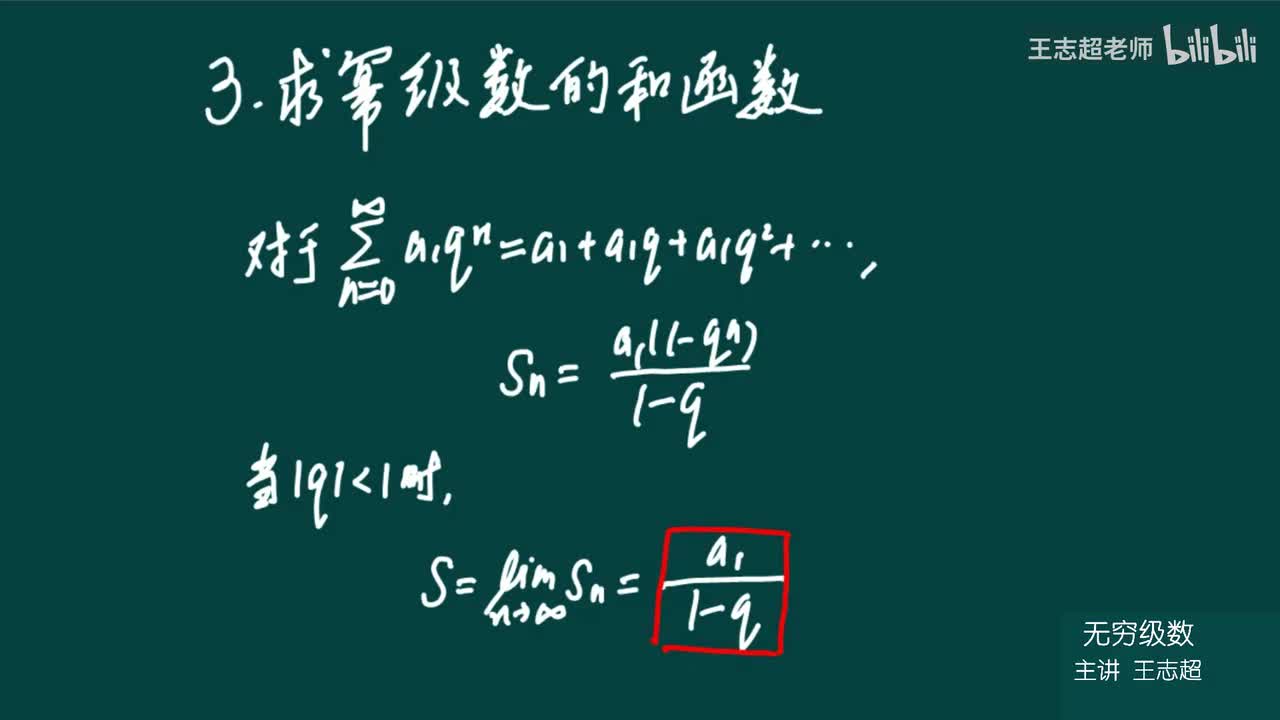 王志超老师 bilibili
3.求幂级数的和函数
对于 ∑_{n=0}^{∞} a₁qⁿ = a₁ + a₁q + a₁q² + ⋯,
Sₙ = a₁(1-qⁿ) / 1-q
当|q|<1时,
S = lim_{n→∞} Sₙ = a₁ / 1-q
无穷级数
主讲 王志超